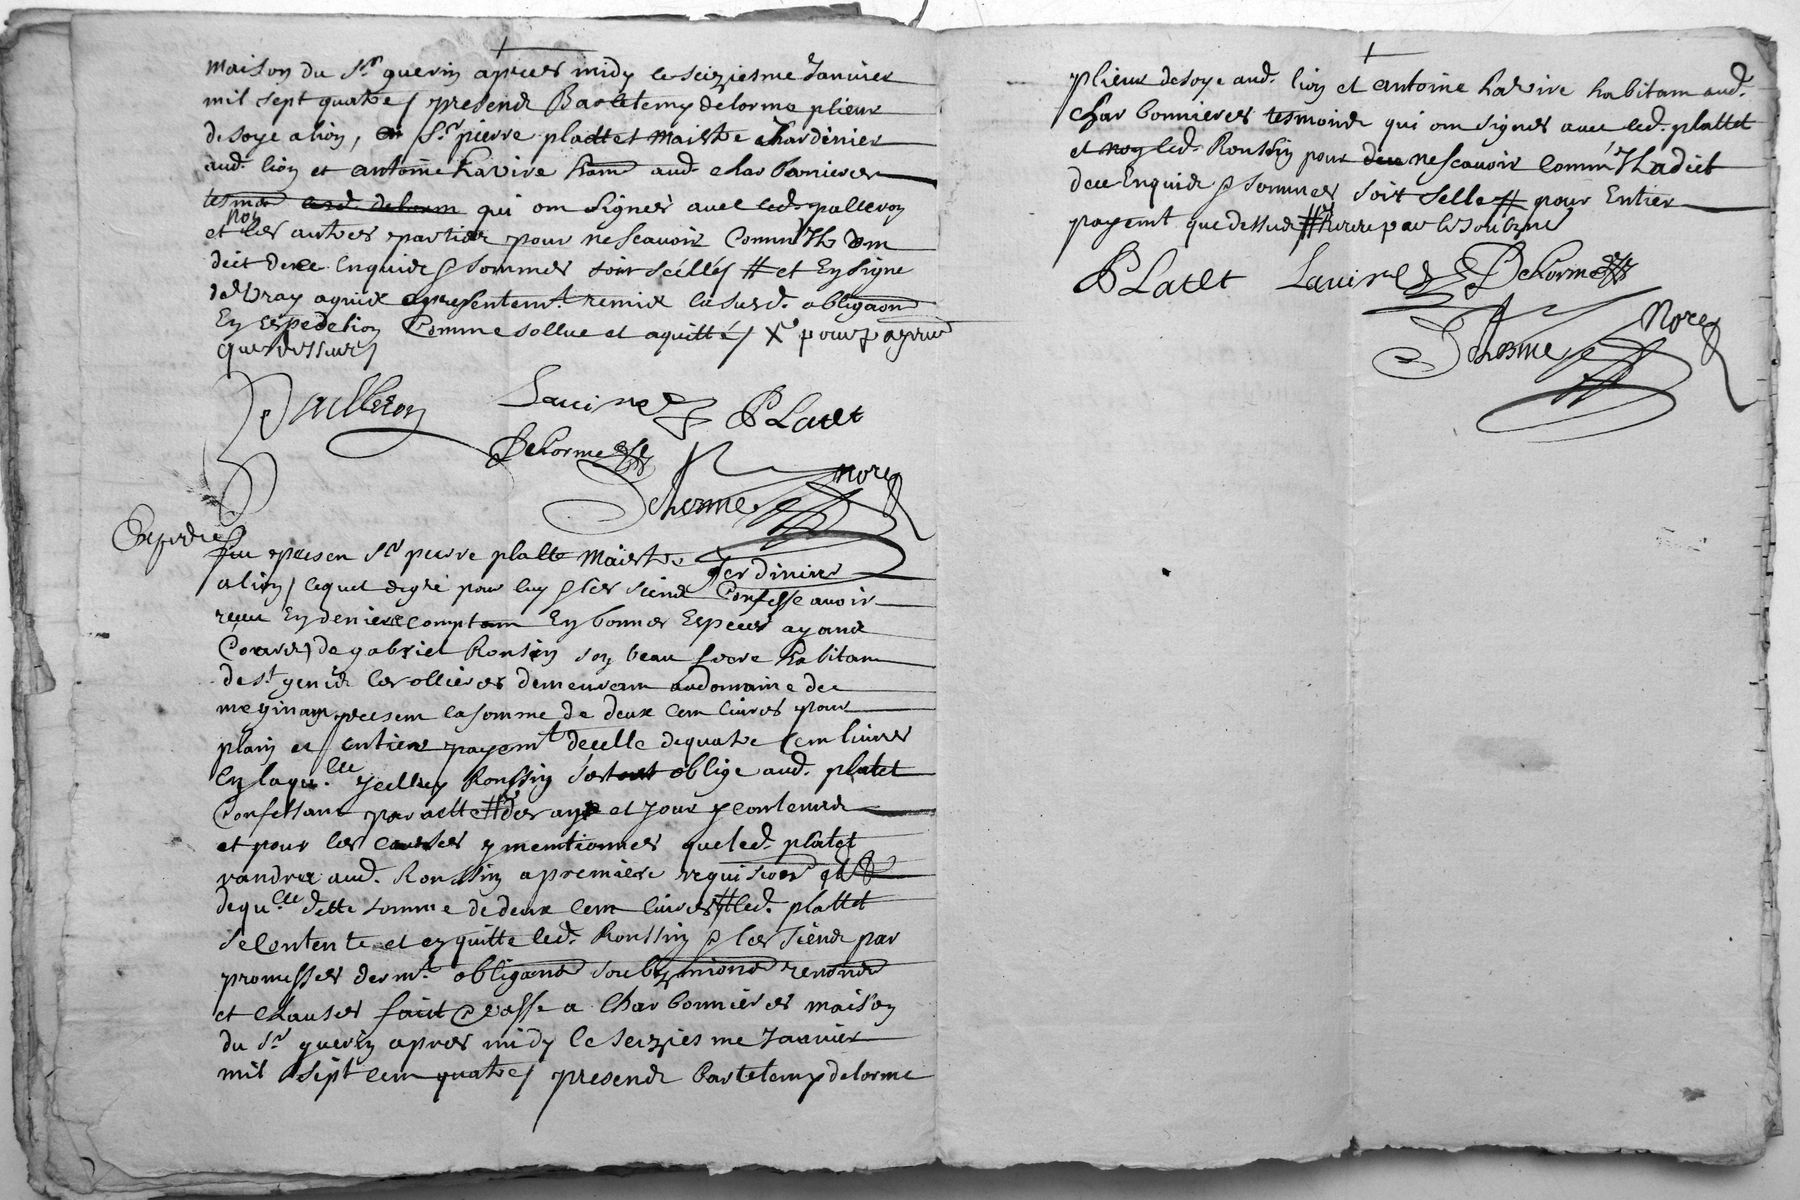 maison du Sr guerin apres midy le seiziesme Janvier
mil sept quatre / presend Bartelemy delorme plieur
de soye a lion, et Sr pierre plattet maistre Jardinier
aud. lion et antoine Lavire ham aud. charbonnieres
tesmoi qui on signes avec led. palleron
et non les autres parties pour ne scavoir comm Ils om
dict de ce Enquis p sommes soit scellé / # et En signe
de vray aquit a presentemt remis la susd. obligaon
En Expedetion Comme sollue et aquitté / X pour payemt
que dessus /
Palleron Lavire PLatet
DeLorme
Delorme nore
Expedie
fut presen Sr pierre platte maistre Jerdinier
a lion / lequel de gré pour luy p les siens Confesse avoir
receu En deniers comptam En bonnes Especes ayand
Cours) de gabriel Ronsin son beau frere habitam
de st genis les ollieres demeuram au domaine de
meginam presem la somme de deux cem livres pour
plain et entier payemt de celle de quatre cem livres
En laquelle Jcelluy Roussin s'est oblige aud. platet
Confessam par acte # des an et jour y contenus
et pour les causes y mentionnes que led. platet
randra aud. Roussin a premiere requision
de quelle dette somme de deux cem livres # led. plattet
se contente et en quitte led. Roussin p les siens par
promesses sermt obligaons soubzmions renons
et clauses fait p passe a Charbonnieres maison
du Sr guerin apres midy le seiziesme Janvier
mil sept cem quatre / presend Bartelemy delorme
plieur de soye aud. lion et antoine Lavire habitam aud.
charbonnieres tesmoins qui om signes avec led. plattet
et non led. Roussin pour ne scavoir comm Il a dict
de ce Enquis p sommes soit selle # pour Entier
payemt que dessus # Rere par le soubzne
PLatet Lavire DeLorme
Delorme nore